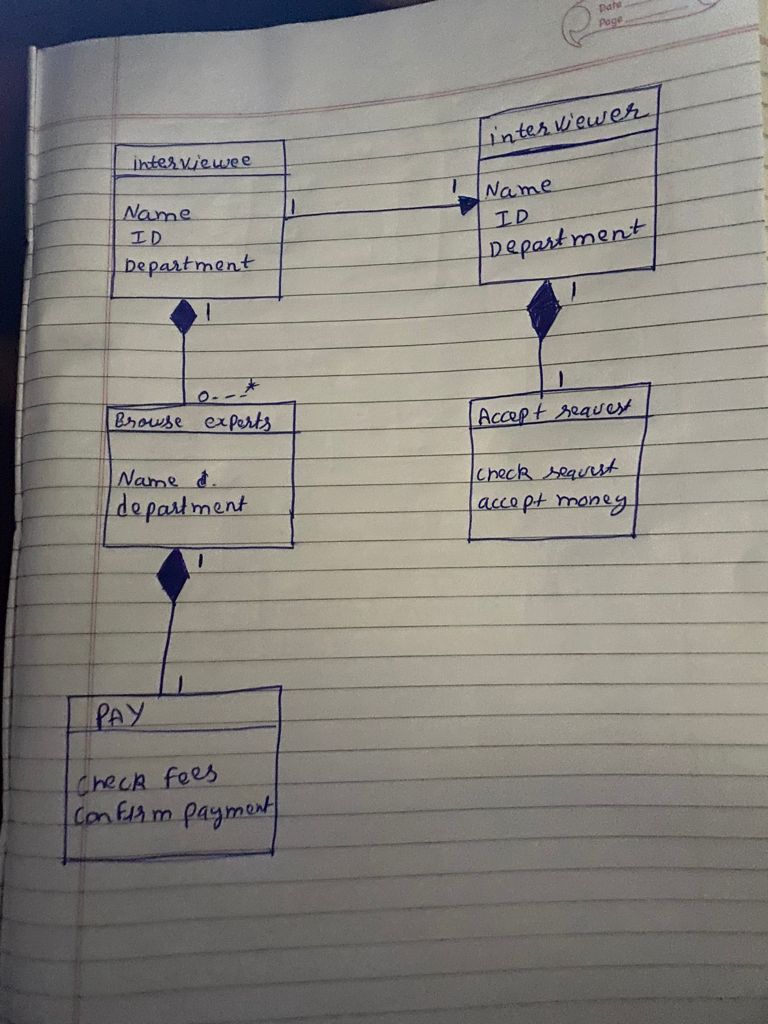 Date
Page
interviewee
Name
ID
Department
1
1
interviewer
Name
ID
Department
1
0---*
Browse experts
Name &
department
1
1
Accept request
check request
accept money
1
1
PAY
Check fees
Confirm payment